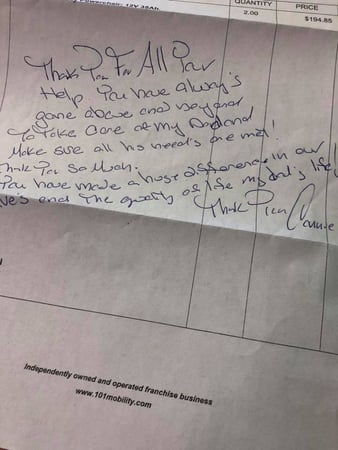 Powerchair: 12V 35Ah
QUANTITY
PRICE
2.00
$194.85
Thank You For All Your
Help. You have always
gone above and beyond
to take care of my Dad and
Make sure all his need's are met!
Thank You So Much.
You have made a huge difference in our
and the quality of life my dad's life
Thank You
Independently owned and operated franchise business
www.101mobility.com